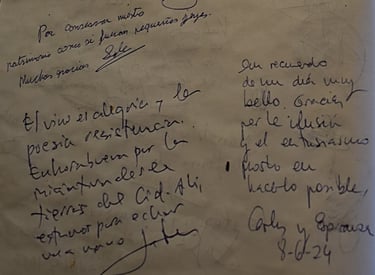 Por conservar nuestro
patrimonio como si fueran pequeñas joyas.
Muchas gracias
El vino es alegría y la
poesía resistencia.
Enhorabuena por la
en
tierras del Cid. Ahí
estamos para echar
una mano
En recuerdo
de un día muy
bello. Gracias
por la ilusión
y el entusiasmo
puesto en
hacerlo posible,
Carlos y Esperanza
8-6-24